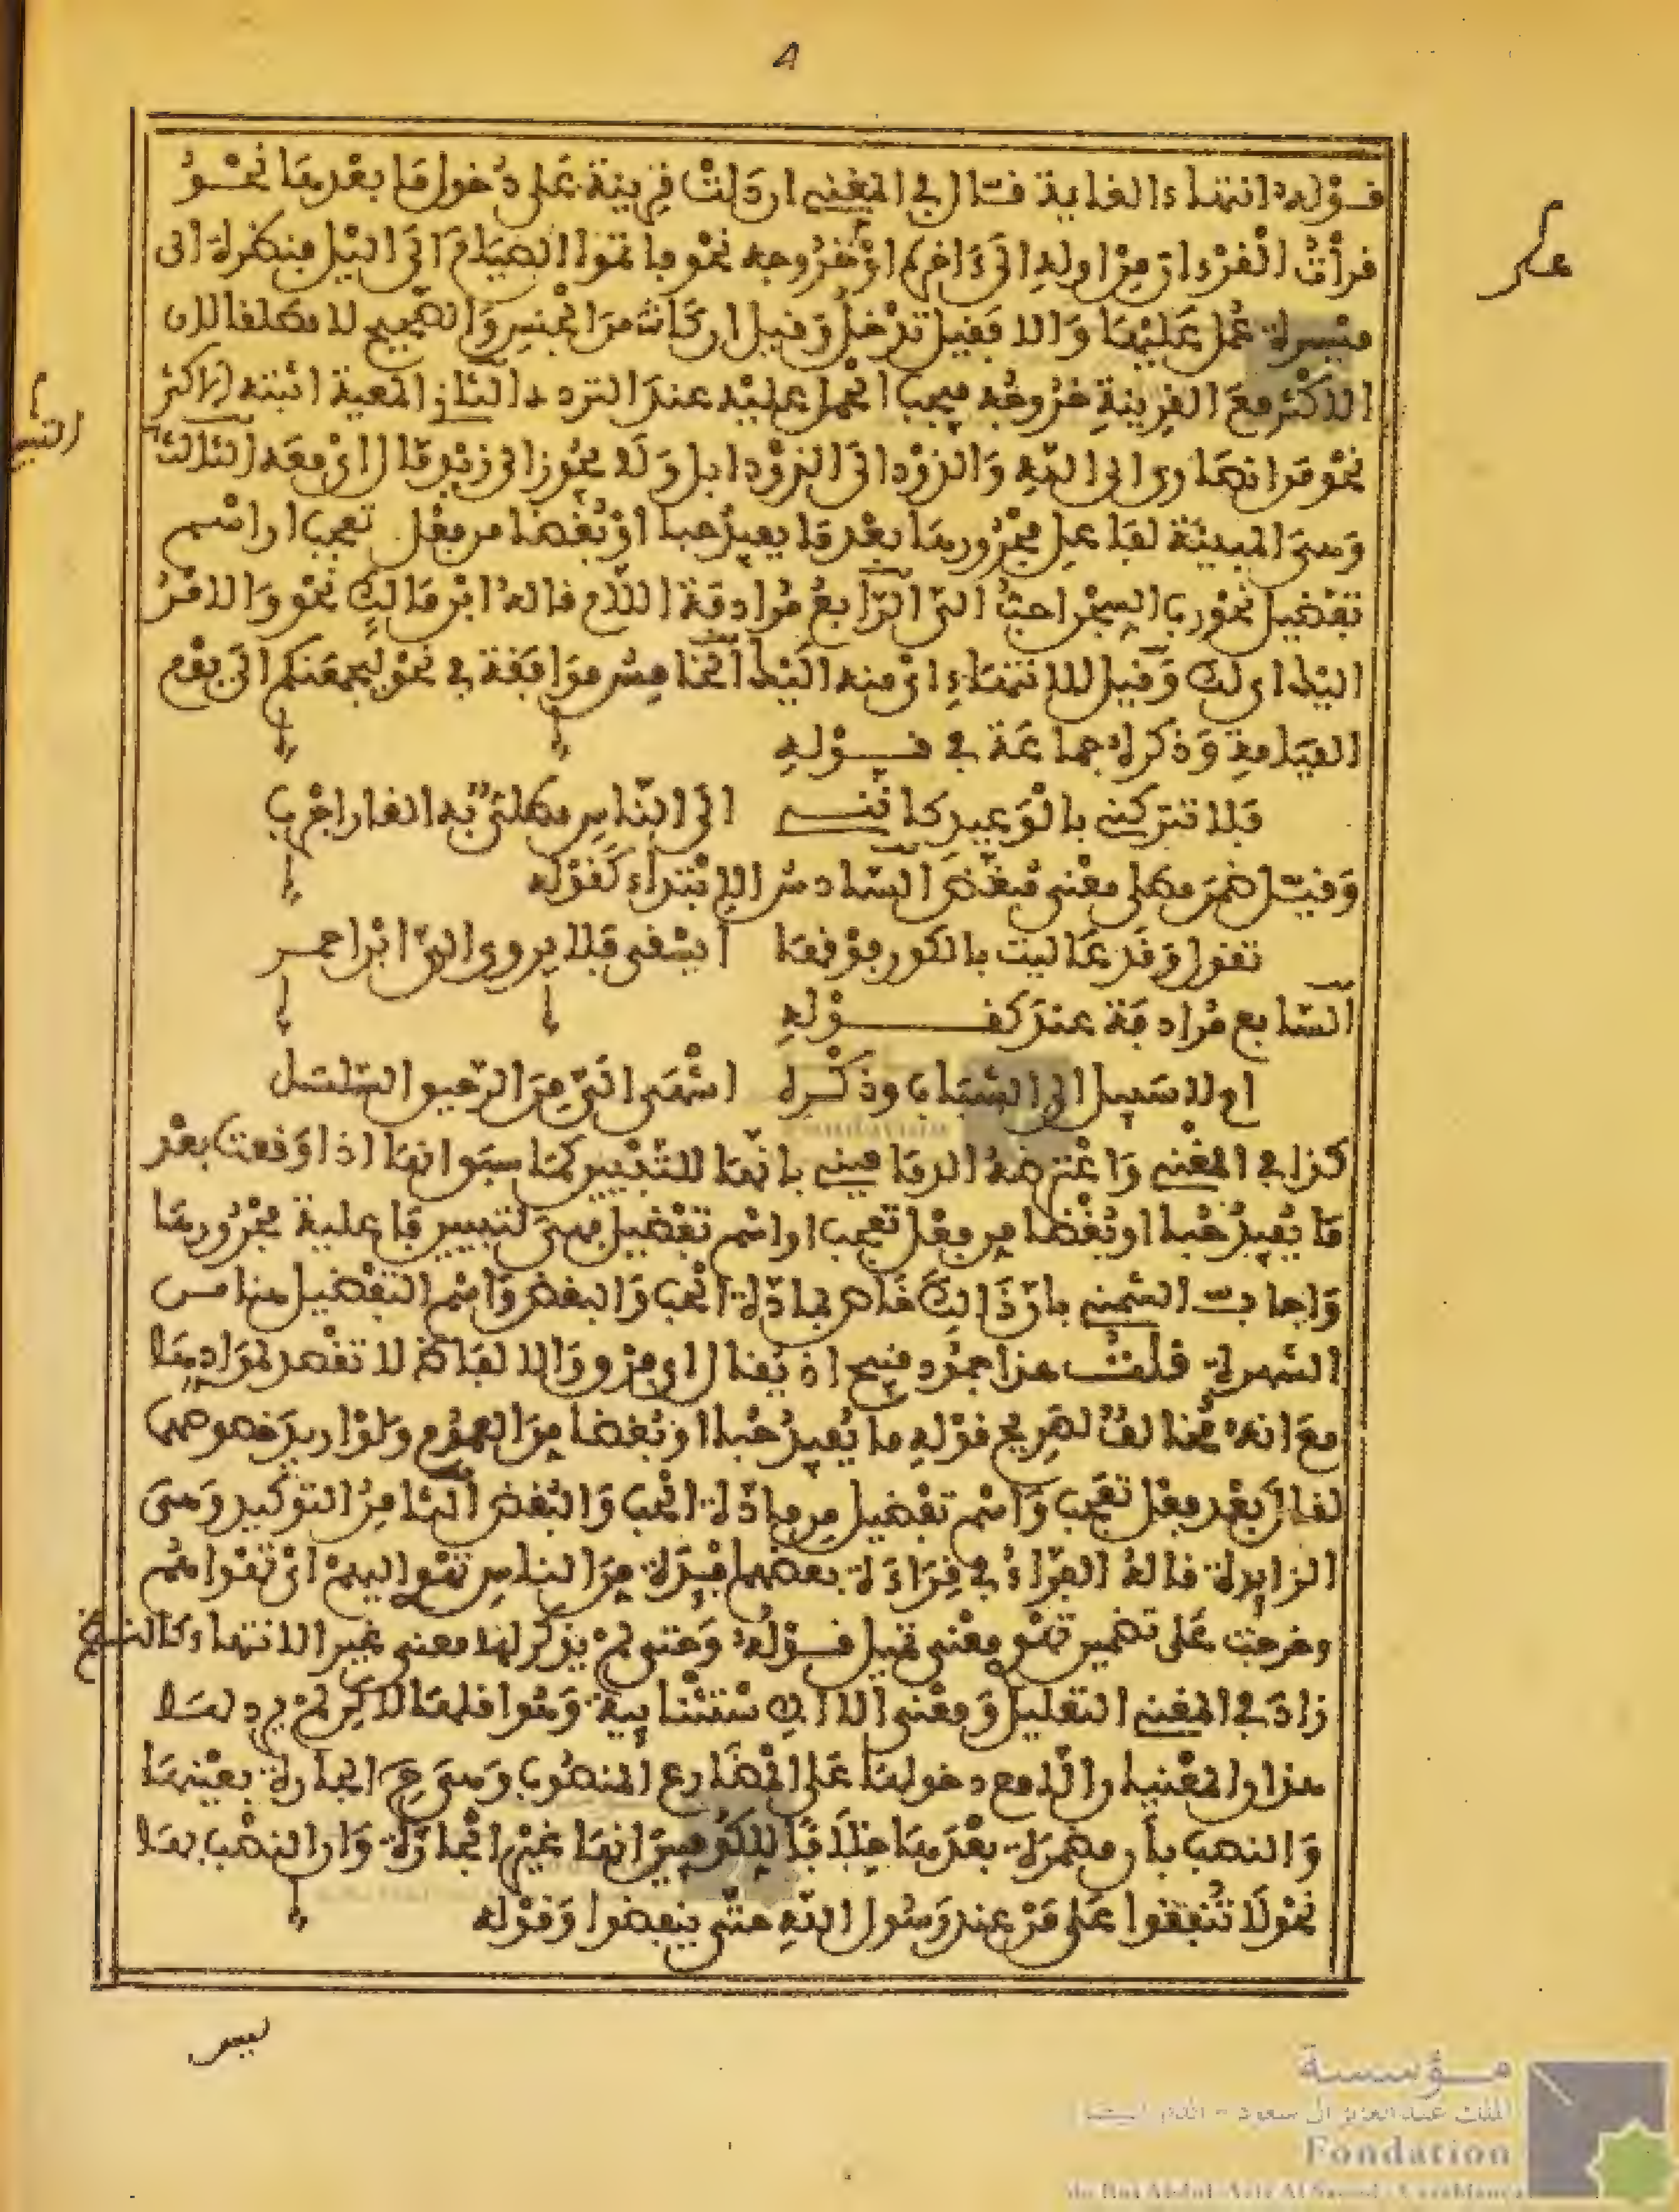 4
قوله انتهاء الغاية قال في المغني ان دلت قرينة على دخول ما بعدها نحو
قرأت القرءان من اوله الى ءاخره او خروجه نحو ثم اتموا الصيام الى اليل فنظرة الى
ميسرة عمل عليها والا فقيل تدخل وقيل ان كانت من الجنس والصحيح لا مطلقا لان
الاكثر مع القرينة خروجه فيجب الحمل عليه عند التردد الثاني المعية اثبته الاكثر
نحو من انصاري الى الله والذود الى الذود ابل ولا يجوز الى زيد مال اي معه الثالث
وهي المبينة لفاعل مجرورها بعد ما يفيد حبا او بغضا من فعل تعجب او اسم
تفضيل نحو رب السجن احب الي الرابع مرادفة اللام قاله ابن مالك نحو والامر
اليك اي لك وقيل للانتهاء اي منه اليك الخامس موافقة في نحو ليجمعنكم الى يوم
القيامة وذكره جماعة في قوله
فلا تتركني بالوعيد كانني الى الناس مطلي به القار اجرب
وقيل ضمن مطلي معنى مبغض السادس الابتداء كقوله
تقول وقد عاليت بالكور فوقها ايسقى فلا يروى الي ابن احمر
السابع مرادفة عند كقوله
ام لا سبيل الى الشباب وذكره اشهى الي من الرحيق السلسل
كذا في المغني واعترضه الدماميني بانها للتبيين كما سبق انها اذا وقعت بعد
ما يفيد حبا او بغضا من فعل تعجب او اسم تفضيل فهي لتبيين فاعلية مجرورها
واجاب الشمني بان ذالك خاص بمادة الحب والبغض واسم التفضيل هنا من
الشهوة قلت هذا جمود قبيح اذ يقال اي فرق والالفاظ لا تقصد لموادها
مع انه مخالف لصريح قوله ما يفيد حبا او بغضا من العموم ولو اريد خصوصهما
لقال بعد فعل تعجب واسم تفضيل من مادة الحب والبغض الثامن التوكيد وهي
الزايدة قاله الفراء في قراءة بعضهم افئدة من الناس تهوى اليهم اي تهواهم
وخرجت على تضمين تهوى معنى تميل قوله وحتى لم يذكر لها معنى غير الانتهاء كالنسخ
زاد في المغني التعليل ومعنى الا الاستثنائية وهو اقلها لاكن لم يرد لها
هذان المعنيان الا مع دخولها على المضارع المنصوب وهي الجارة بعينها
والنصب بان مضمرة بعدها خلافا للكوفيين انها غير الجارة وان النصب بها
نحو لا تنفقوا على من عند رسول الله حتى ينفضوا وقوله
ليس
مؤسسة
الملك عبد العزيز آل سعود - الدار البيضاء
Fondation
du Roi Abdul-Aziz Al Saoud - Casablanca